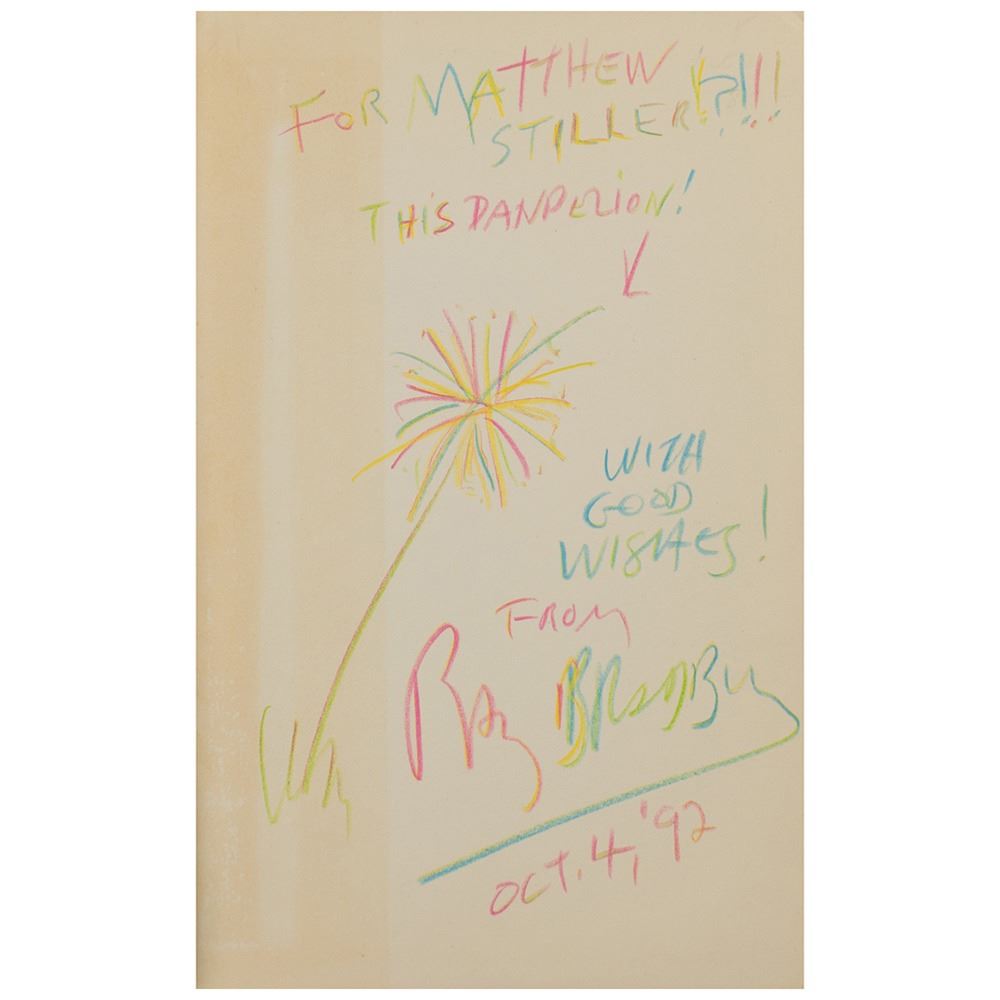 FOR MATTHEW
STILLER!?!!!
THIS DANDELION!
WITH
GOOD
WISHES!
FROM
Ray Bradbury
OCT. 4, '92